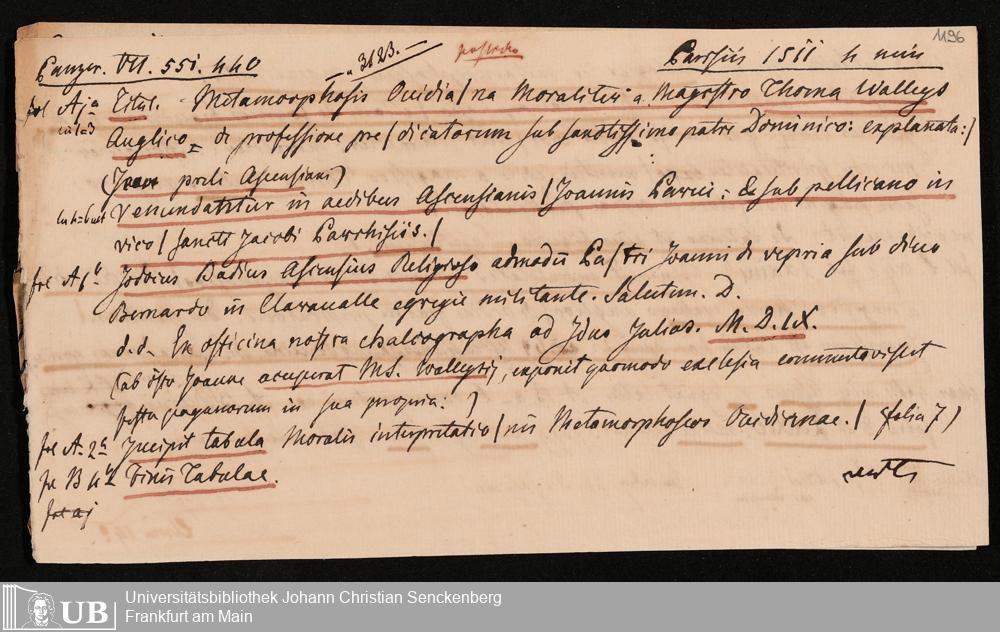 1196
Panzer. VII. 551. 440 3623.— Parisiis 1511 4 min
fol Aja Titul. Metamorphosis Ouidia/na Moraliter a Magistro Thoma Walleys
Anglico = de professione pre/dicatorum sub sanctissimo patre Dominico: explanata:/
( preli Ascensiani)
Venundatur in aedibus Ascensianis/Joannis Parui: & sub pellicano in
vico/sancti Jacobi Parrhisiis./
fol A1b Jodocus Badius Ascensius Religioso admodū Pa/tri Joanni de vepria sub diuo
Bernardo in Claraualle egregie militante. Salutem. D.
d.d. Ex officina nostra chalcographa ad Idus Julias. M.D.IX.
(ab isto Joanne acceperat MS. Walleysij, exponit quomodo ecclesia commutavisset
festa paganorum in sua propria:)
fol A 2a Incipit tabula Moralis interpretatio/nis Metamorphoseos Ouidianae./ (folia 7)
fol B 4b Finis Tabulae. verte
fol aj
Universitätsbibliothek Johann Christian Senckenberg
UB Frankfurt am Main